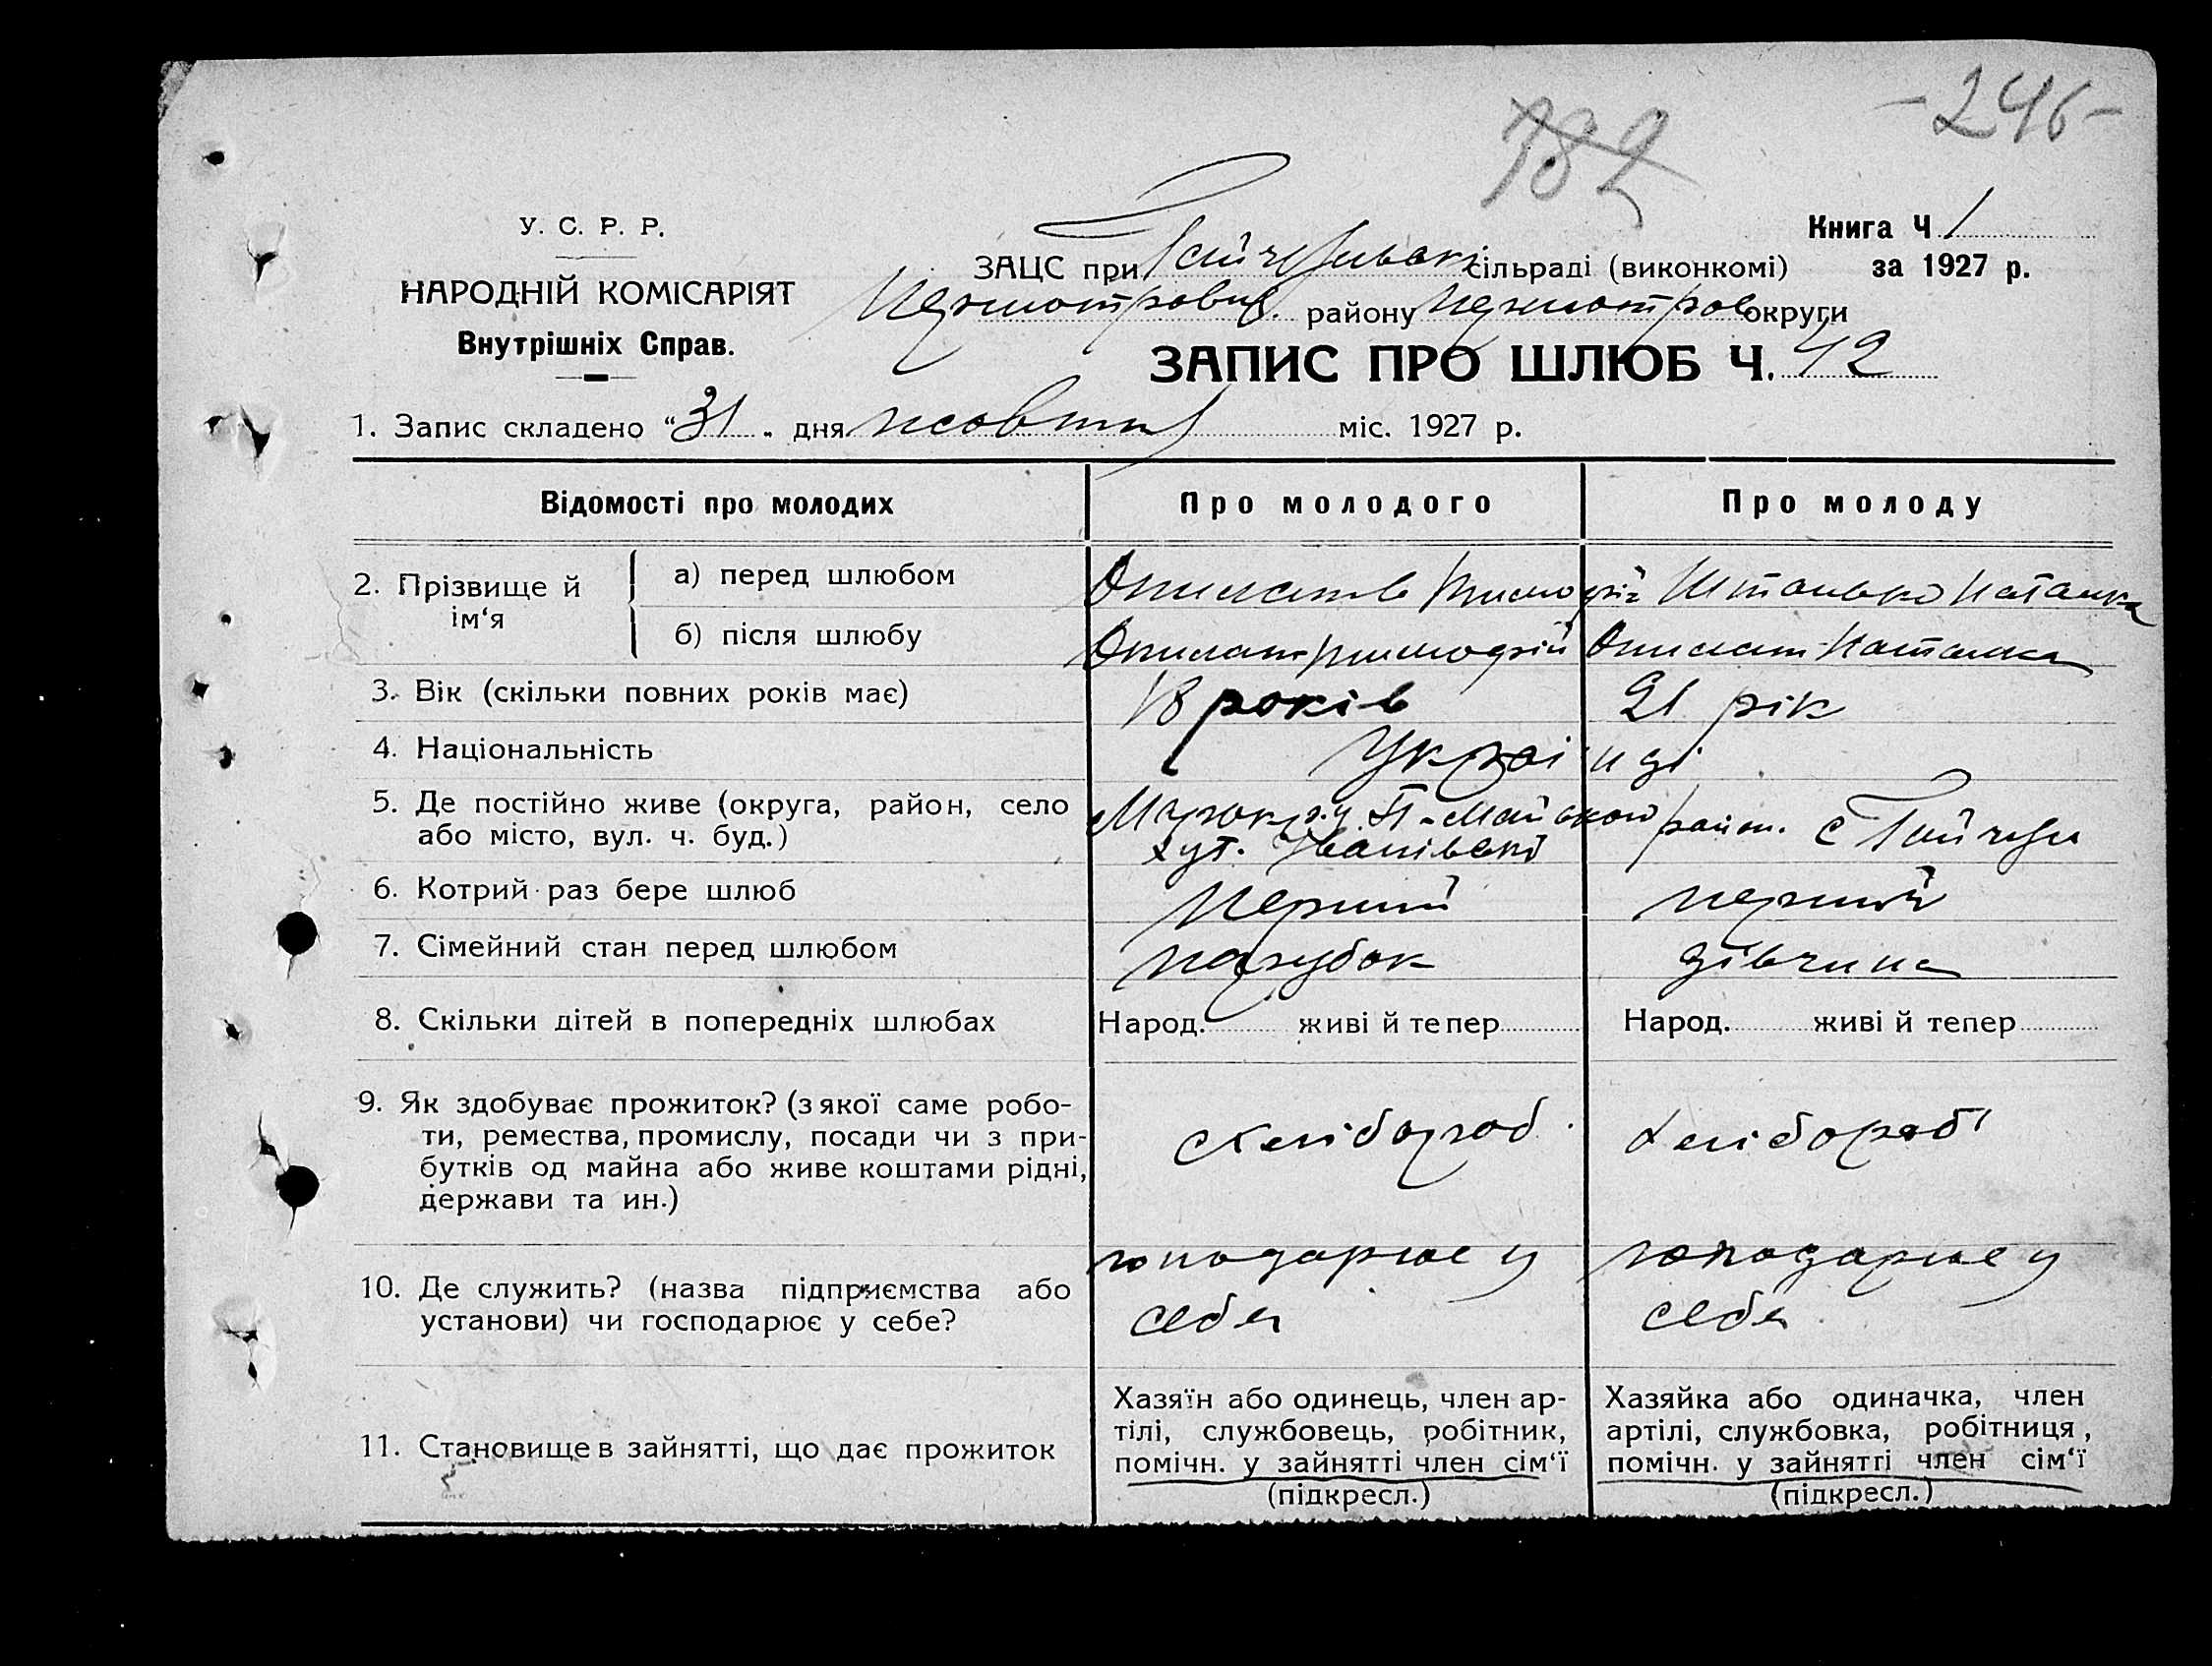 -246-
782
У. С. Р. Р.
НАРОДНІЙ КОМІСАРІЯТ
Внутрішніх Справ.
Книга Ч 1
за 1927 р.
ЗАЦС при сільраді (виконкомі)
району округи
ЗАПИС ПРО ШЛЮБ Ч. 42
1. Запис складено "31" дня жовтня міс. 1927 р.
Відомості про молодих Про молодого Про молоду
2. Прізвище й ім‘я
а) перед шлюбом Наталка
б) після шлюбу Наталка
3. Вік (скільки повних років має) 18 років 21 рік
4. Національність Українці
5. Де постійно живе (округа, район, село
або місто, вул. ч. буд.)
хут. Іванівські район. с Гайчур
6. Котрий раз бере шлюб Перший перший
7. Сімейний стан перед шлюбом парубок дівчина
8. Скільки дітей в попередніх шлюбах Народ. живі й тепер Народ. живі й тепер
9. Як здобуває прожиток? (з якої саме робо-
ти, ремества, промислу, посади чи з при-
бутків од майна або живе коштами рідні,
держави та ин.)
хлібороб хлібороб
10. Де служить? (назва підприємства або
установи) чи господарює у себе?
господарює у
себя
господарює у
себя
11. Становище в зайнятті, що дає прожиток
Хазяїн або одинець, член ар-
тілі, службовець, робітник,
помічн. у зайнятті член сім‘ї
(підкресл.)
Хазяйка або одиначка, член
артілі, службовка, робітниця,
помічн. у зайнятті член сім‘ї
(підкресл.)